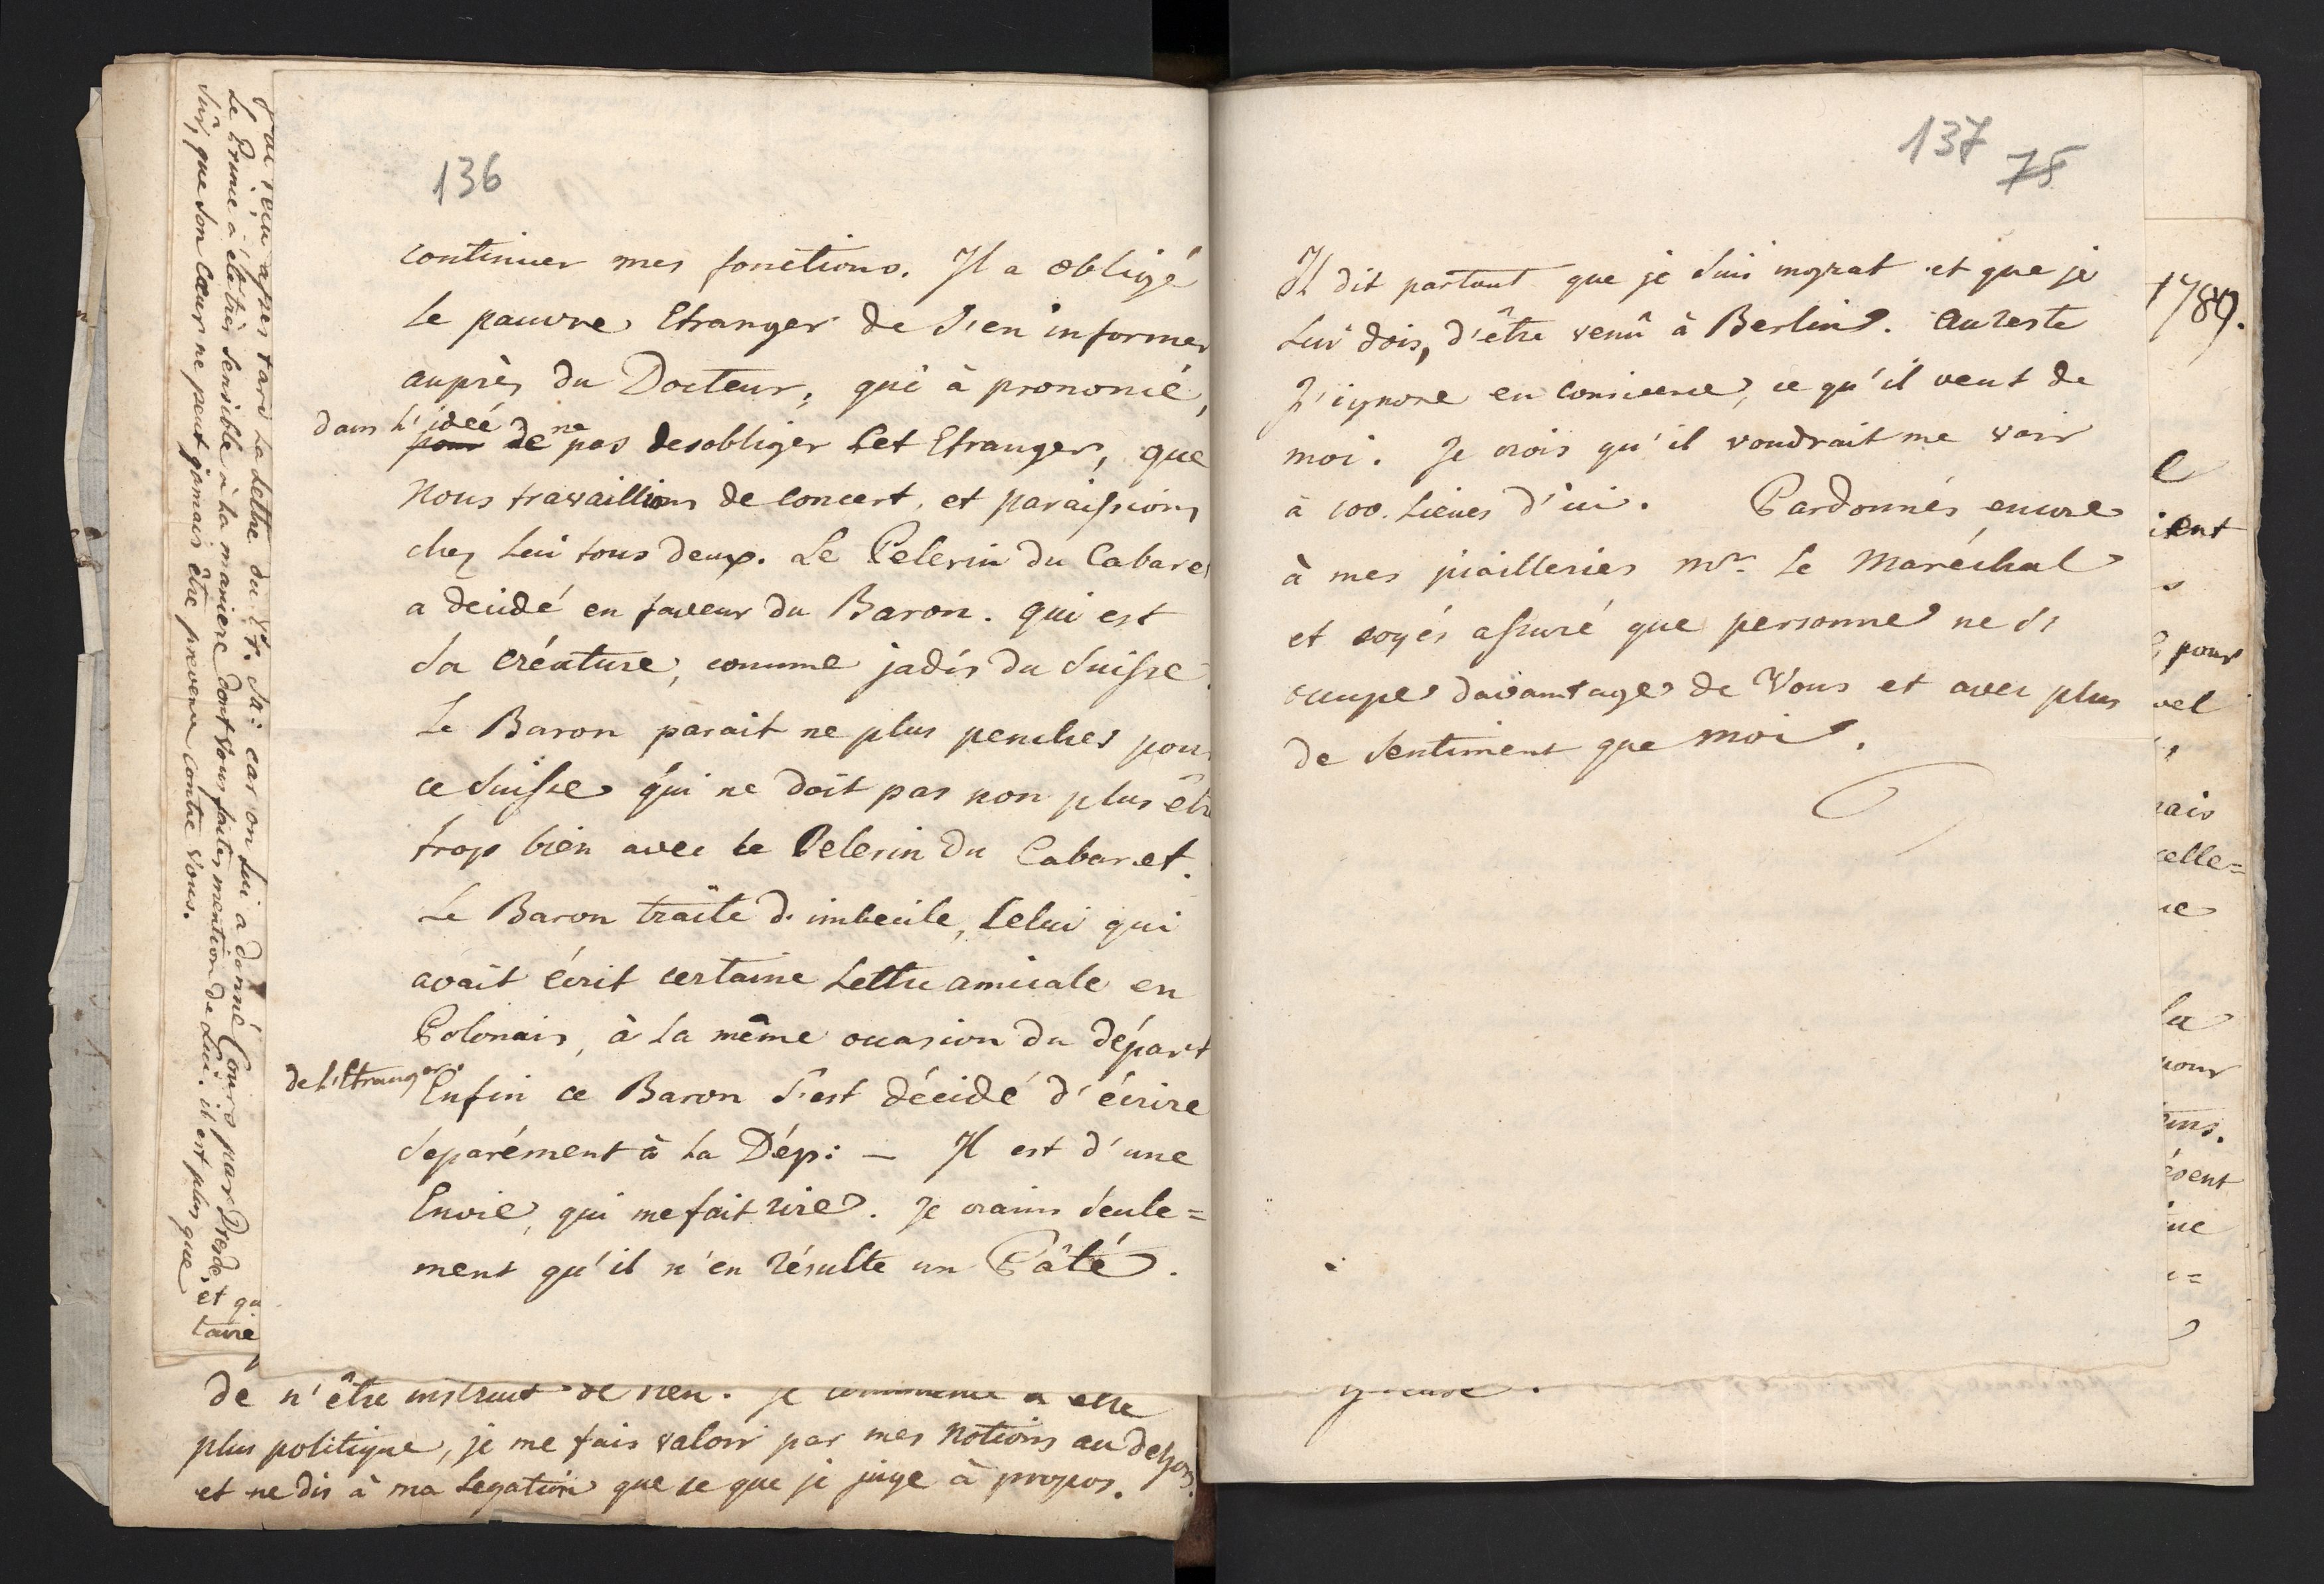 136
continuer mes fonctions. Il a obligé
le pauvre Etranger de s'en informer
auprès du Docteur, qui à prononcé,
dans l'ideé
pour de ne pas desobliger cet Etranger, que
nous travaillions de concert, et paraissions
chez lui tous deux. Le Pelerin du Cabaret
a decidé en faveur du Baron. qui est
sa créature, comme jadis du Suisse.
Le Baron parait ne plus pencher pour
ce Suisse qui ne doit pas non plus être
trop bien avec le Pelerin du Cabaret.
Le Baron traite d'imbecile, celui qui
avait écrit certaine Lettre amicale en
Polonais, à la même occasion du départ
de l'Etranger.
Enfin ce Baron s'est décidé d'écrire
separément à la Dép: — Il est d'une
Envie, qui me fait rire. Je crains seule=
ment qu'il n'en résulte un Pâté.
J'ai reçu apres tard la Lettre du car on lui a donné Cours par Dresde, et qu
Le Prince a été très sensible à la maniere dont vous faites mention de Lui. il est plus que
sûr, que son Coeur ne peut jamais être prevenu contre vous.
de n'être instruit de rien. Je commence a etre
plus politique, je me fais valoir par mes notions au dehors.
et ne dis à ma Legation que ce que je juge à propos.
137
75
Il dit partout que je suis ingrat et que je
Lui dois, d'être venû à Berlin. Au reste
J'ignore en conscience, ce qu'il veut de
moi. Je crois qu'il voudrait me voir
à 100. Lieues d'ici. Pardonnés encore
à mes piailleries Mr. le Maréchal
et soyés assuré que personne ne s'
occupe davantage de Vous et avec plus
de sentiment que moi.
1789.
pour